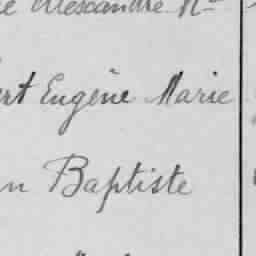 Alexandre N
Eugène Marie
Baptiste